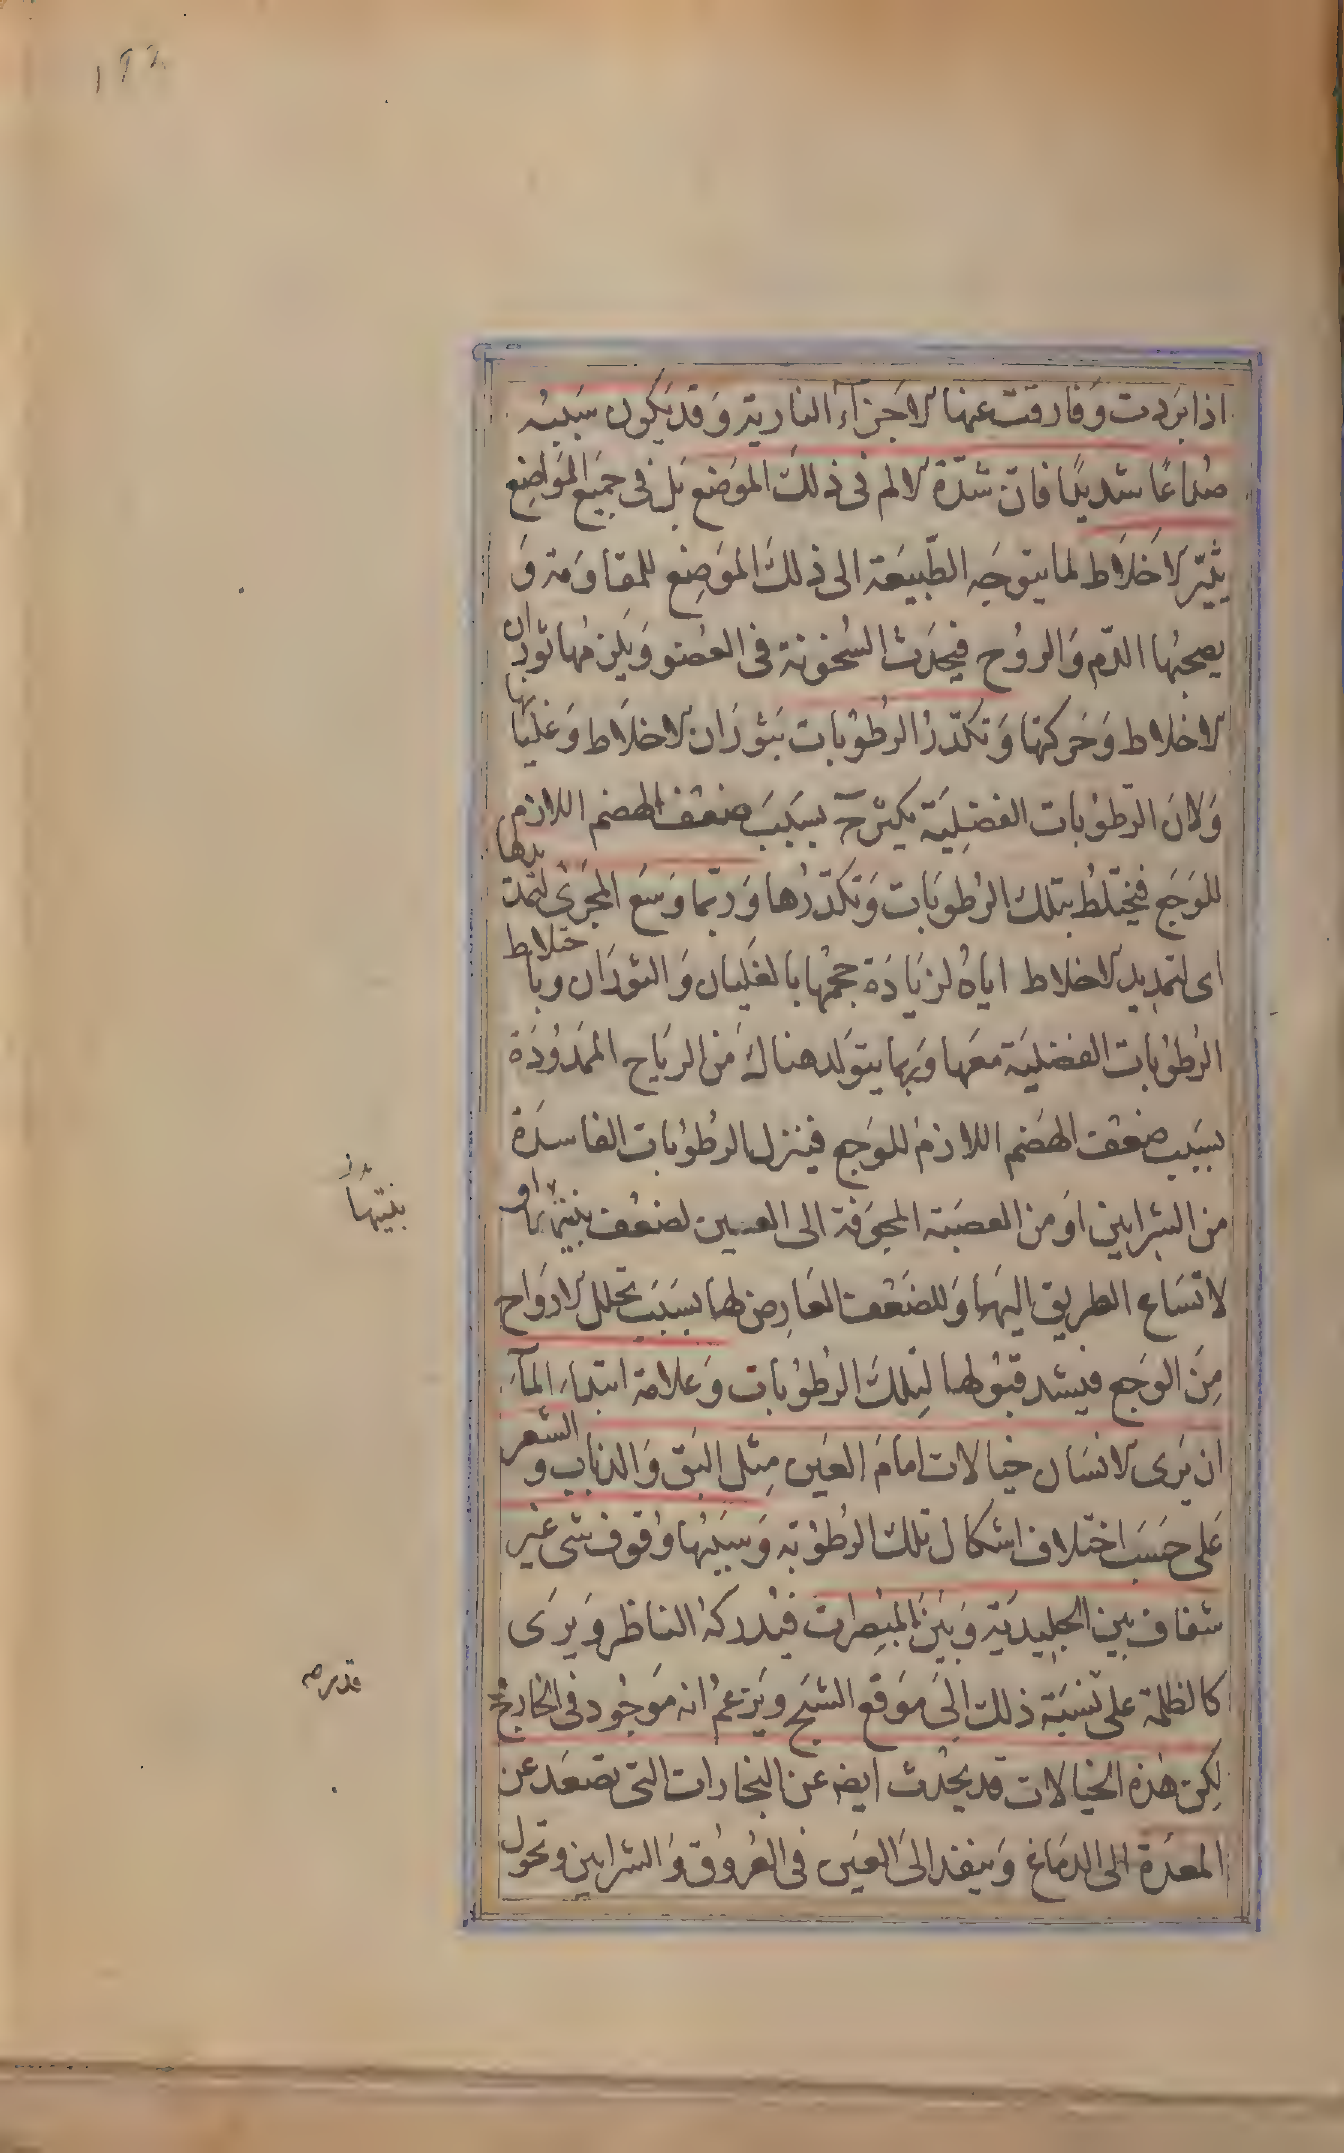 ١٩٢
اذا بَردت وَفارقت عنها الاَجزآء النارية وَقد يَكون سَببُه
صُداعًا شديدًا فانّ شدّة الالم فى ذلكَ الموَضع بَل فى جميَع المَواضِع
يثيّر الاَخلاَط لما يتوجّه الطّبيعَة الى ذلكَ الموَضِع للمقاوَمة وَ
يصحبُها الدّم وَالروُح فيحدَث السُخونة فى العُضو وَيلزمُها ثوران
الاخلاط وَحَركتها وَتكدّرُ الرطُوُبات بَثورَان الاخلاَط وَغليانها
وَلانَ الرّطوُبات الفضِليَة يكثر حٓ بسَبَبَ ضعف الهضم اللازم
للوَجَع فيختَلطُ بتلك الرُطوبَات وَتكدّرُها وَربّما وَسعَ المجَرىٰ لتمديدها
اى لتمديد الاخلاط اياهُ لزيَادَة حجمُها بالغَليان وَالثورَان وباختلاط
الرُطوُبات الفضليَة معَها وَبما يتوَلد هناكَ مَن الريَاح الممدوُدَة
بسَبَب ضعف الهَضم اللازم للوَجع فينزل الرطُوُبات الفاسدَة
من الشرايين اوَمن العصَبة المجَوفة الى العين لضعُف بنيتهما او
لاتسَاع الطريق اليهَما وَللضَعف العَارِض لهما بسَبَب تحلل الاروَاح
مِنَ الوَجع فيشد قبوُلهما لتِلكَ الرُطوُبات وَعلامة ابتدآء المآء
ان يَرى الانسَان خيالات امامَ العَين مِثل البَق وَالذباب و الشعر
عَلى حَسَب اختلاف اشكال تلك الرطوُبة وَسبَبهُا وقُوف شى غير
شفاف بين الجليديَة وَبَين المبُصِرات فيُدركهُ الناظر وَيرَى
كالظلمة على نسبَة ذلك الىَ مَوقع الشبَح ويَزعمُ انه مَوجُود فى الخارج
لكن هٰذه الخيالات قد يحدُث ايضه عن البخارات التى يصعَد عن
المعدَة الى الدمَاغ وَينفذ الىَ العيَن فى العُروُق وَالشرايين وتحول
بنيتها